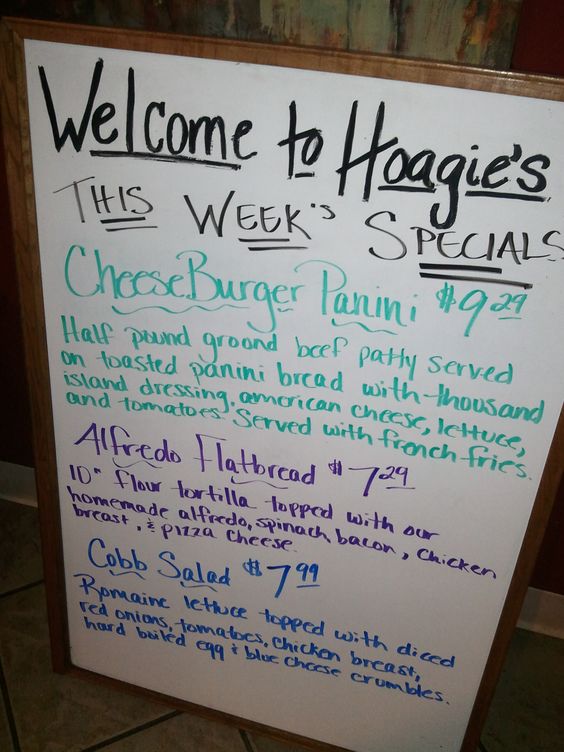 Welcome to Hoagie's
THIS WEEK'S SPECIALS
CheeseBurger Panini $9.29
Half pound ground beef patty served
on toasted panini bread with thousand
island dressing, american cheese, lettuce,
and tomatoes. Served with french fries.
Alfredo Flatbread $7.29
10" flour tortilla topped with our
homemade alfredo, spinach, bacon, chicken
breast, & pizza cheese.
Cobb Salad $7.99
Romaine lettuce topped with diced
red onions, tomatoes, chicken breast,
hard boiled egg & blue cheese crumbles.